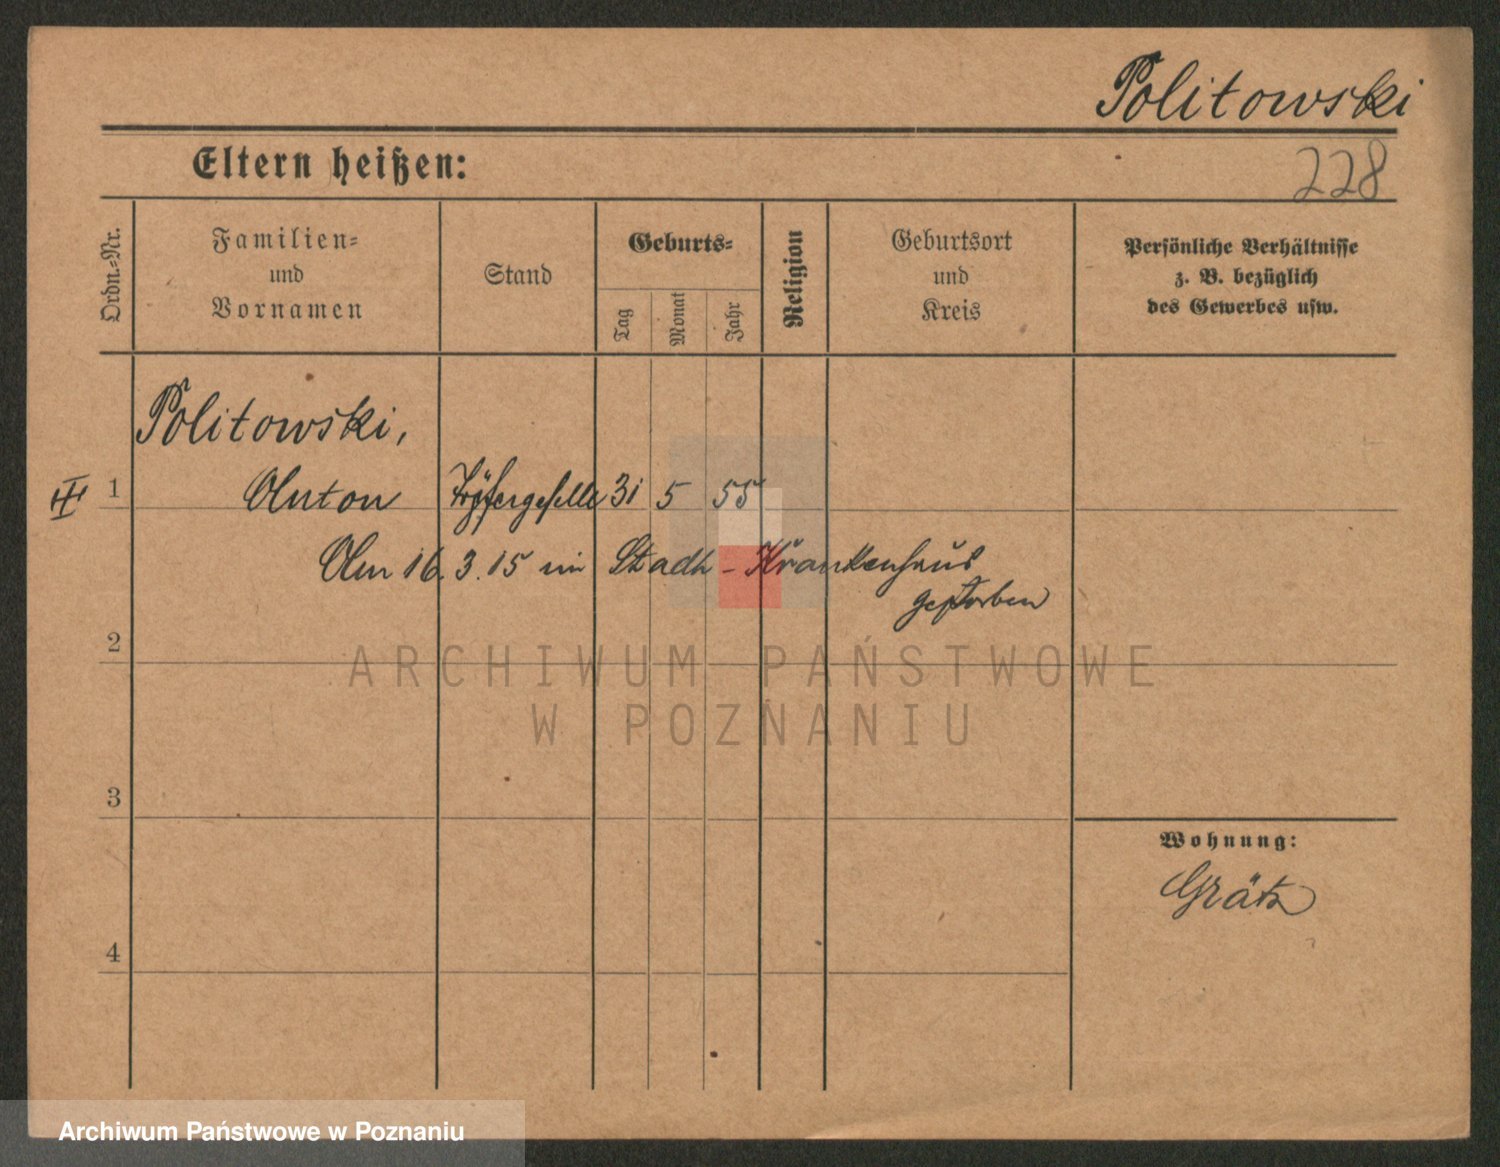 Politowski
Eltern heißen:
228
Ordn.-Nr.
Familien-
und
Vornamen
Stand
Geburts-
Tag
Monat
Jahr
Religion
Geburtsort
und
Kreis
Persönliche Verhältnisse
z. B. bezüglich
des Gewerbes usw.
Politowski,
1 Anton Töpfergeselle 31 5 55
Am 16.3.15 im Stadt-Krankenhaus
gestorben
2
ARCHIWUM PAŃSTWOWE
W POZNANIU
3
Wohnung:
Grätz
4
Archiwum Państwowe w Poznaniu